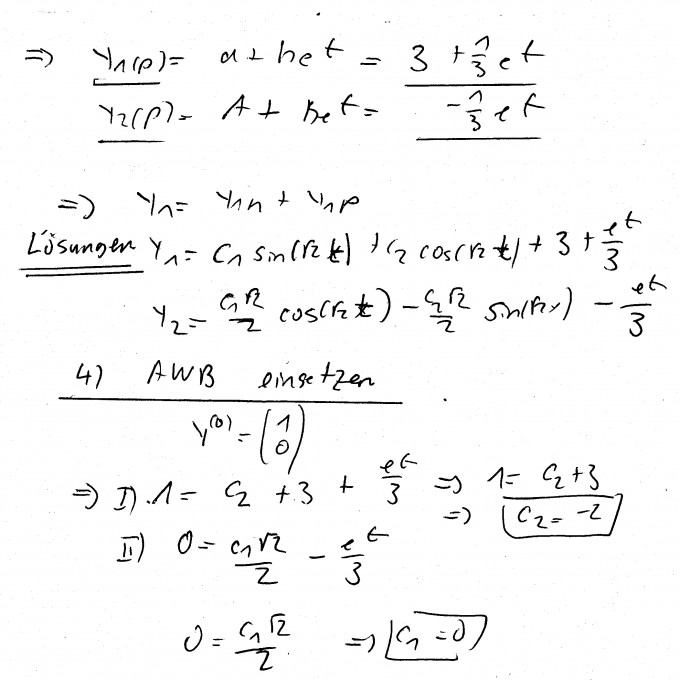 ⇒ y₁(p) = a + be^t = 3 + 1/3 e^t
y₂(p) = A + Be^t = -1/3 e^t
⇒ y₁ = y₁h + y₁p
Lösungen y₁ = C₁ sin(√2 t) + C₂ cos(√2 t) + 3 + e^t/3
y₂ = C₁√2/2 cos(√2 t) - C₂√2/2 sin(√2x) - e^t/3
4) AWB einsetzen
y(0) = (1 0)
⇒ I) 1 = C₂ + 3 + e^t/3 ⇒ 1 = C₂ + 3
⇒ C₂ = -2
II) 0 = C₁√2/2 - e^t/3
0 = C₁√2/2 ⇒ C₁ = 0